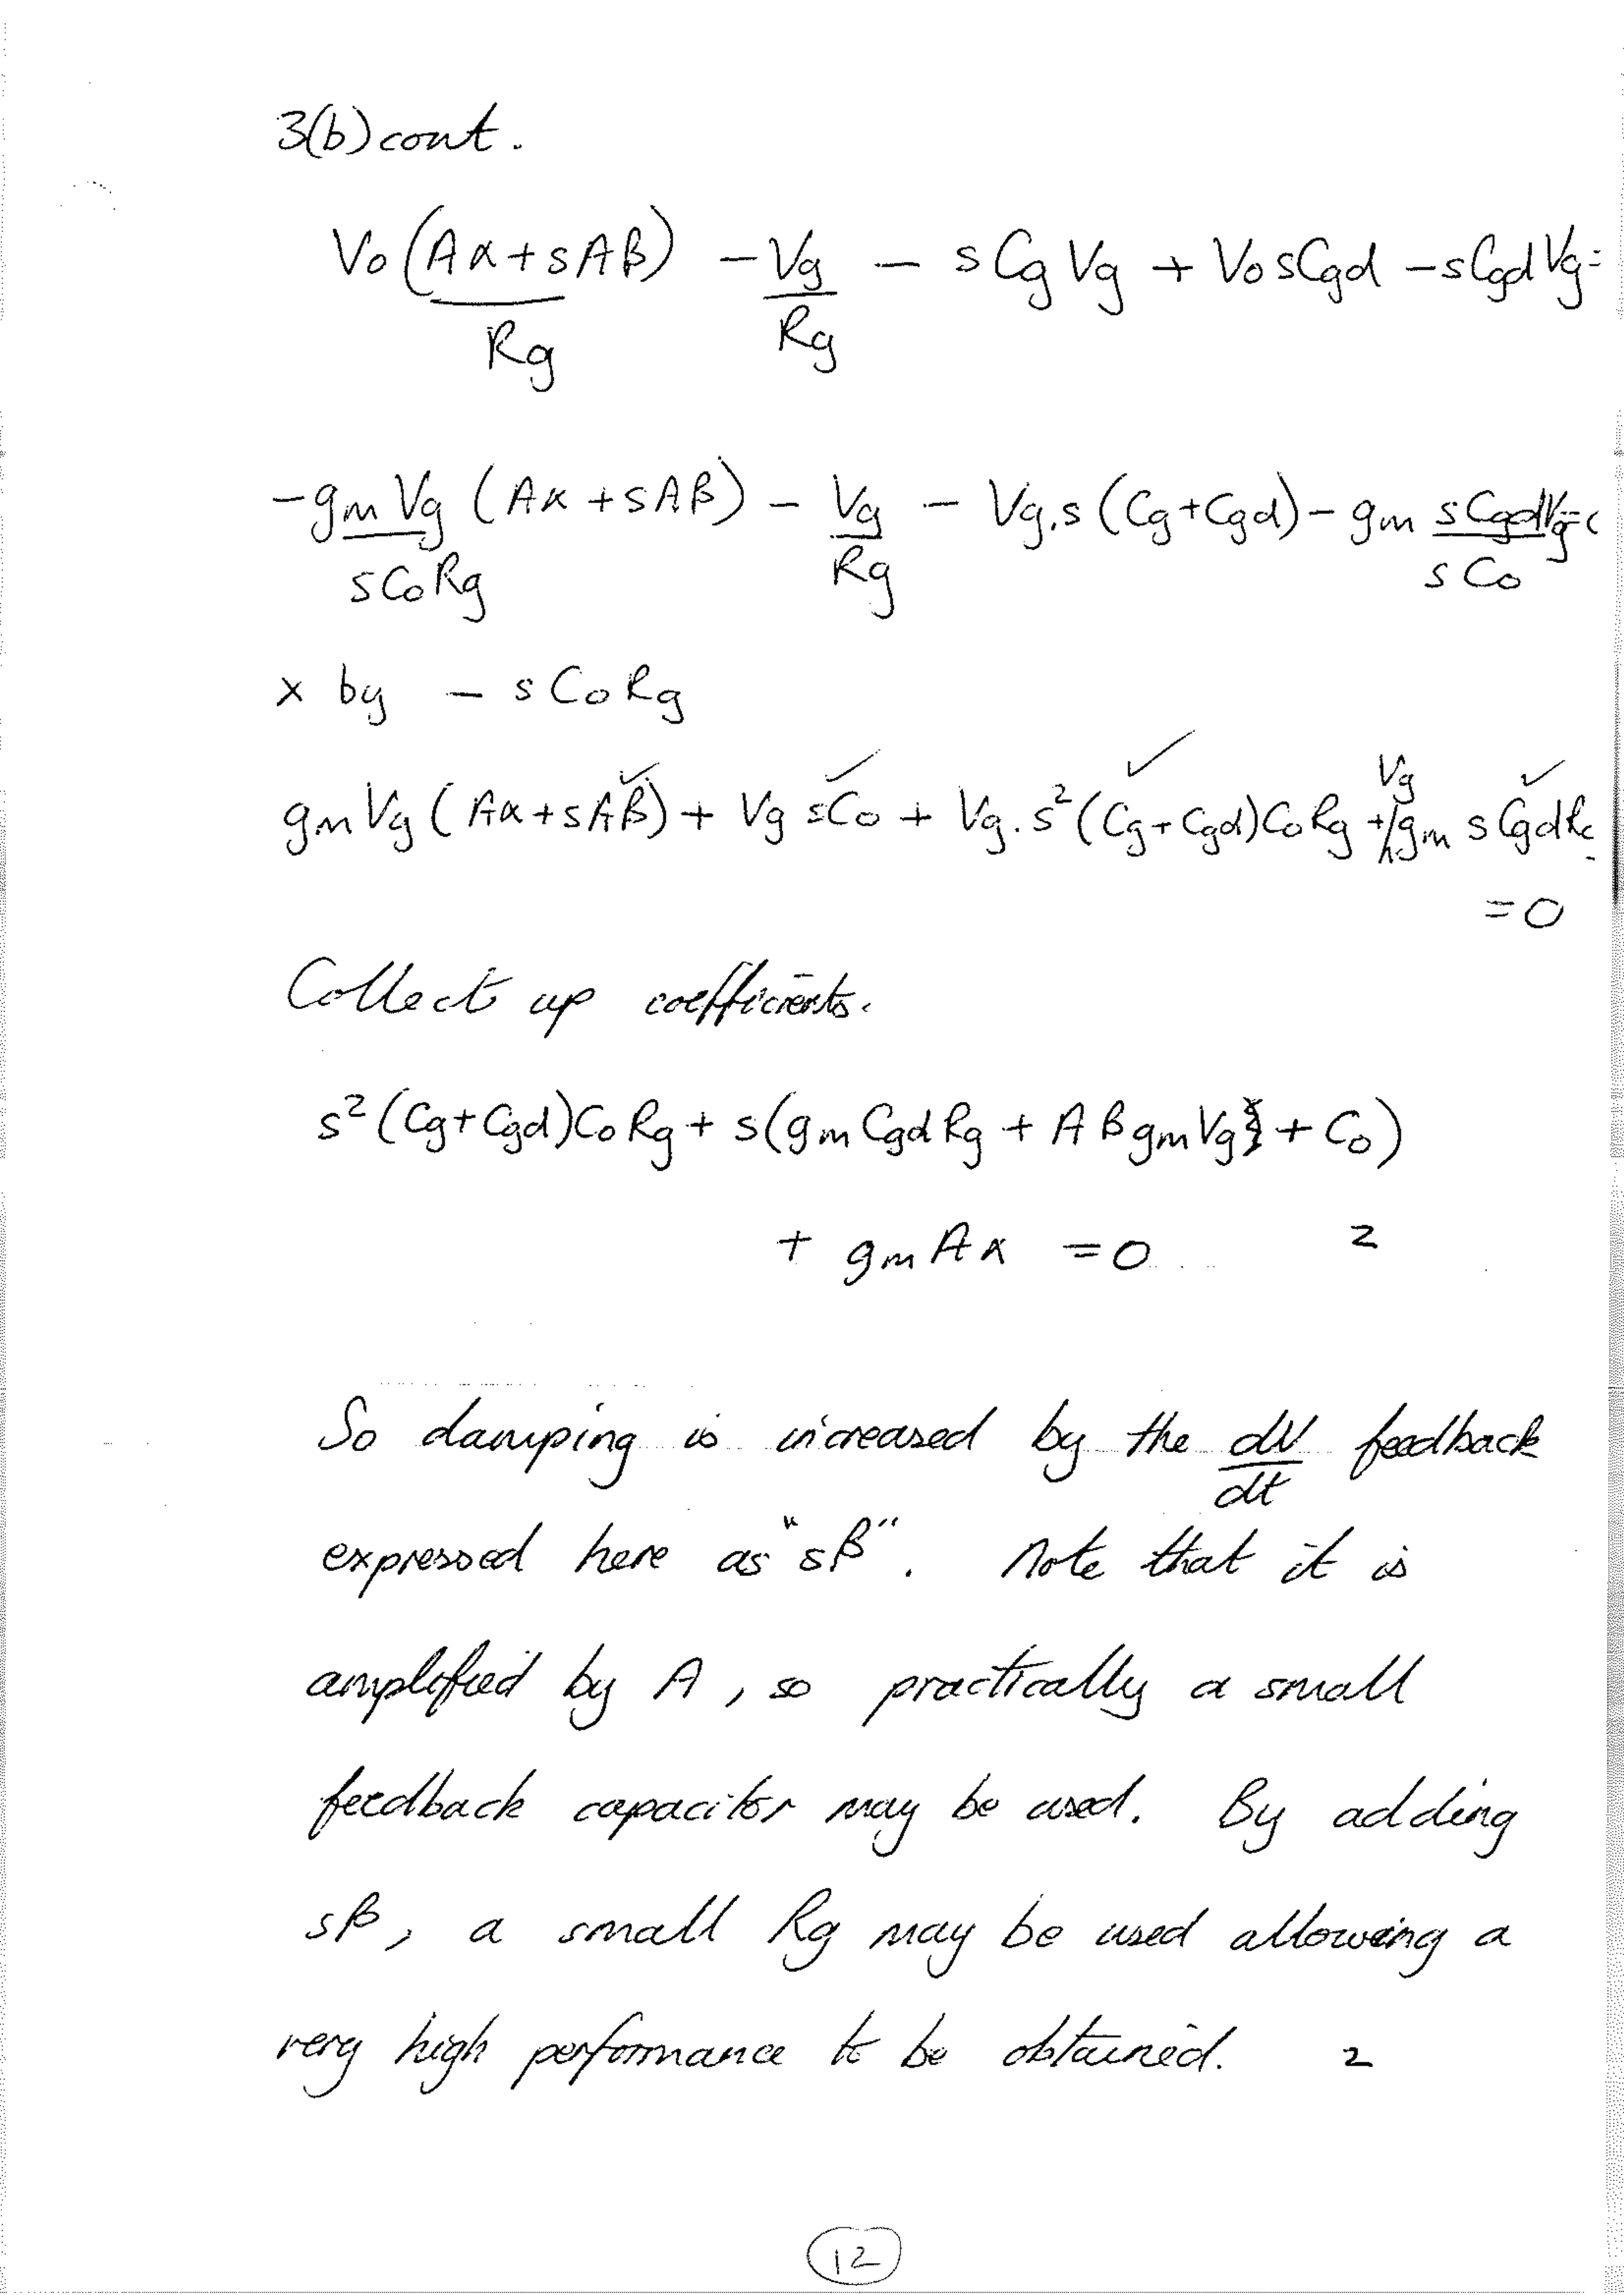 3(b) cont.
Vo (Aα + sAβ) / Rg − Vg / Rg − s Cg Vg + Vo s Cgd − s Cgd Vg =
− gm Vg / s Co Rg (Aα + sAβ) − Vg / Rg − Vg.s (Cg + Cgd) − gm s Cgd Vg / s Co =
× by − s Co Rg
gm Vg (Aα + sAβ) + Vg s Co + Vg. s² (Cg + Cgd) Co Rg + Vg gm s Cgd Rg
= 0
Collect up coefficients.
s² (Cg + Cgd) Co Rg + s (gm Cgd Rg + A β gm Vg + Co)
+ gm A α = 0 2
So damping is increased by the dV/dt feedback
expressed here as "sβ". Note that it is
amplified by A, so practically a small
feedback capacitor may be used. By adding
sβ, a small Rg may be used allowing a
very high performance to be obtained. 2
12